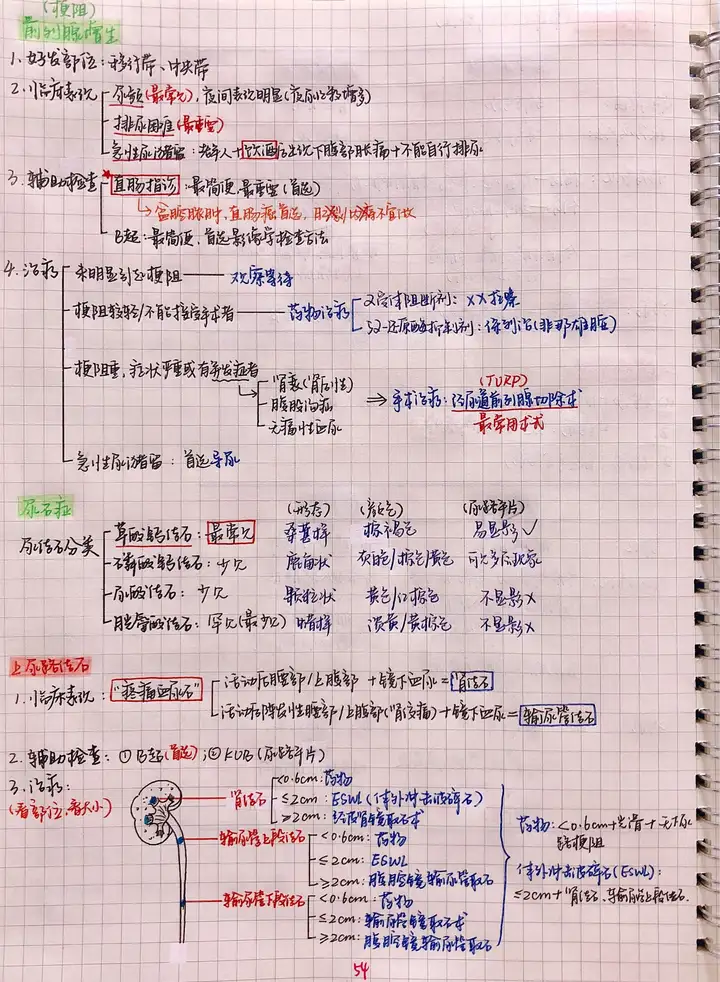 (梗阻)
前列腺增生
1. 好发部位：移行带、中央带
2. 临床表现 尿频(最常见)，夜间表现明显(夜尿次数增多)
排尿困难(最重要)
急性尿潴留：老年人+饮酒后出现下腹部胀痛+不能自行排尿
3. 辅助检查 ★直肠指诊：最简便、最重要(首选)
→盆腔脓肿、直肠癌首选，肛裂、痔不宜做
B超：最简便、首选影像学检查方法
4. 治疗 未明显引起梗阻——观察等待
梗阻较轻/不能接受手术者——药物治疗 α受体阻断剂：××拉嗪
5α-还原酶抑制剂：保列治(非那雄胺)
梗阻重，症状严重或有并发症者
肾衰(肾后性)
腹股沟疝
无痛性血尿
⇒ 手术治疗：经尿道前列腺切除术
(TURP)
最常用术式
急性尿潴留：首选导尿
尿石症
(形态) (颜色) (尿路平片)
尿结石分类 草酸钙结石：最常见 桑葚样 棕褐色 易显影✓
磷酸钙结石：少见 鹿角状 灰白/棕色/黄色 可见多层现象
尿酸结石：少见 颗粒状 黄色/红棕色 不显影×
胱氨酸结石：罕见(最少见) 蜡样 淡黄/黄棕色 不显影×
上尿路结石
1. 临床表现："疼痛血尿石" 活动后腰部/上腹部+镜下血尿=肾结石
活动后阵发性腰部/上腹部(肾绞痛)+镜下血尿=输尿管结石
2. 辅助检查：①B超(首选)；②KUB(尿路平片)
3. 治疗：
(看部位，看大小)
肾结石 <0.6cm：药物
≤2cm：ESWL(体外冲击波碎石)
≥2cm：经皮肾镜取石术
输尿管上段结石 <0.6cm：药物
≤2cm：ESWL
≥2cm：腹腔镜输尿管取石
输尿管下段结石 <0.6cm：药物
≤2cm：输尿管镜取石术
≥2cm：腹腔镜输尿管取石
药物：<0.6cm+光滑+无下尿
路梗阻
体外冲击波碎石(ESWL)：
≤2cm+肾结石、输尿管上段结石.
54